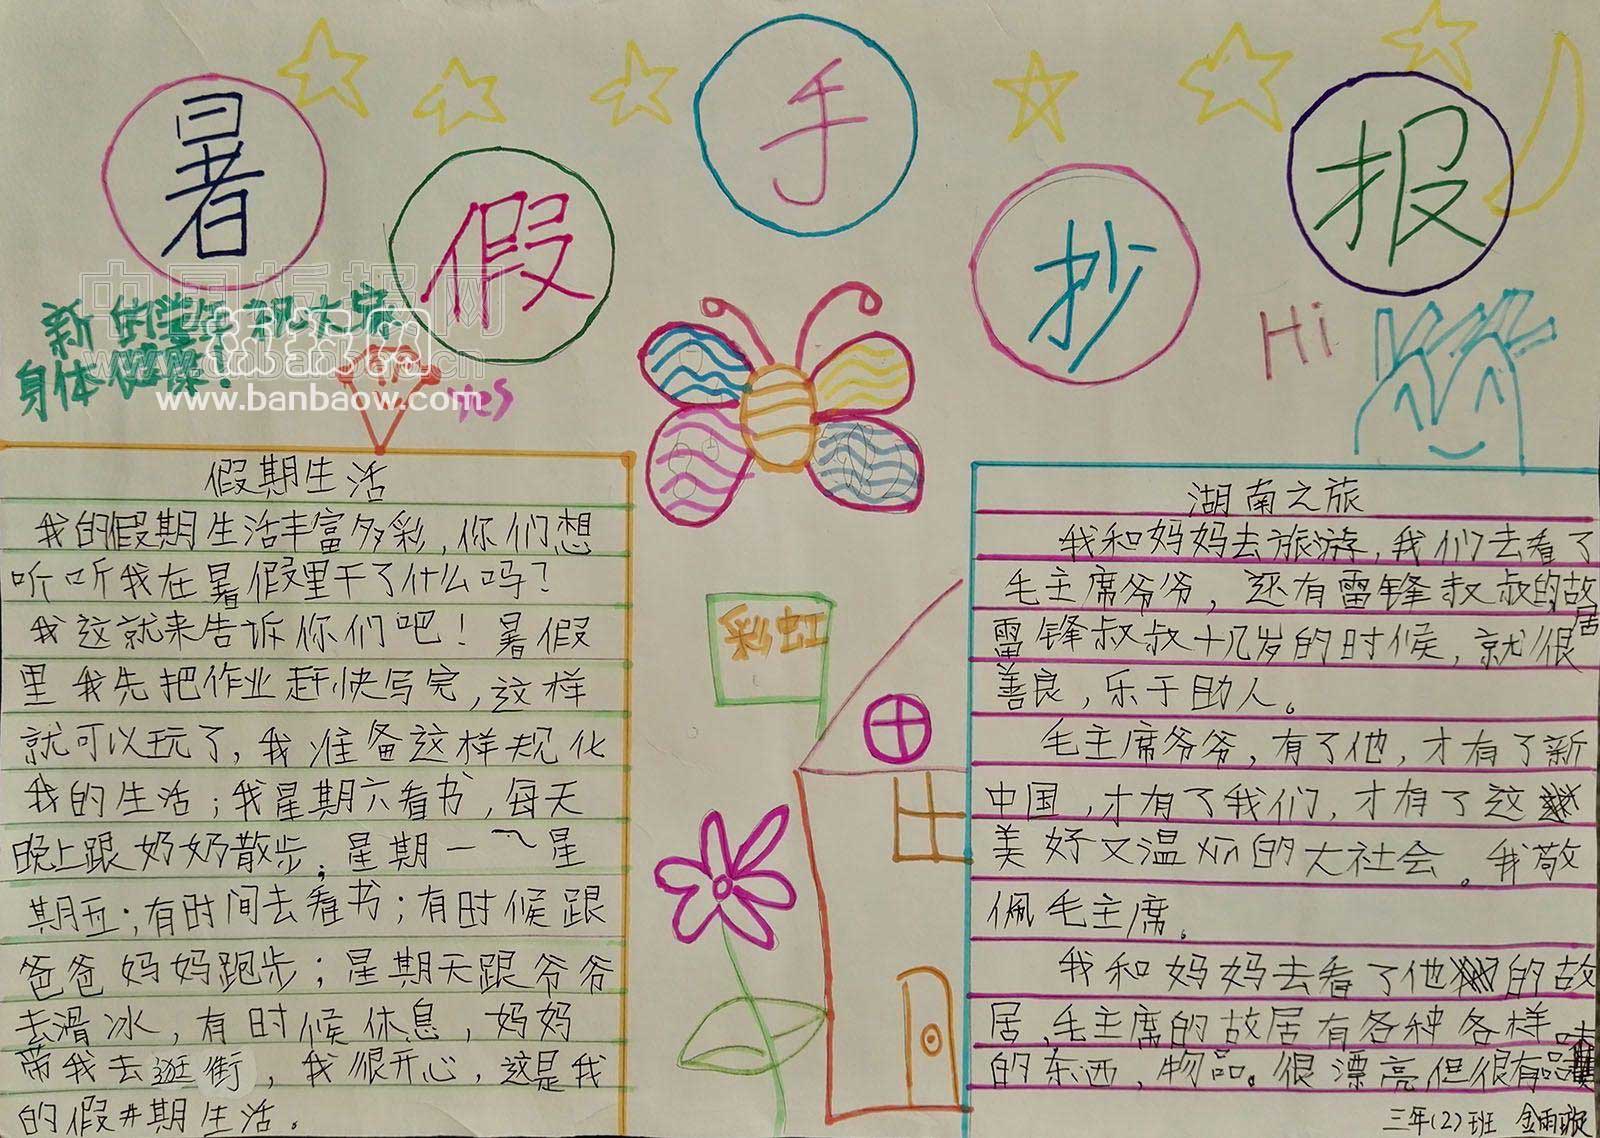 暑假手抄报
中国板报网
新的学年祝大家
身体健康！
板报网
www.banbaow.cn
www.banbaow.com
yes
Hi
假期生活
我的假期生活丰富多彩，你们想
听听我在暑假里干了什么吗？
我这就来告诉你们吧！暑假
里我先把作业赶快写完，这样
就可以玩了，我准备这样规化
我的生活；我星期六看书，每天
晚上跟奶奶散步；星期一~星
期五；有时间去看书；有时候跟
爸爸妈妈跑步；星期天跟爷爷
去滑冰，有时候休息，妈妈
带我去逛街，我很开心，这是我
的假期生活。
彩虹
湖南之旅
我和妈妈去旅游，我们去看了
毛主席爷爷，还有雷锋叔叔的故居
雷锋叔叔十几岁的时候，就很
善良，乐于助人。
毛主席爷爷，有了他，才有了新
中国，才有了我们，才有了这
美好又温的大社会。我敬
佩毛主席。
我和妈妈去看了他的故
居，毛主席的故居有各种各样
的东西，物品。很漂亮但很有品味
三年(2)班 金雨璇